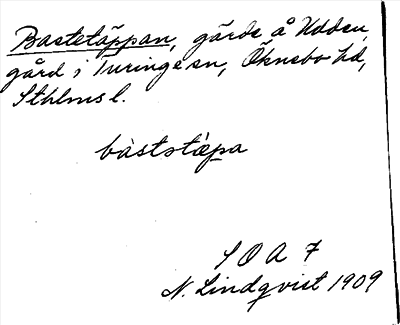 Bastetäppan, gärde å Udden,
gård i Turinge sn, Öknebo hd,
Sthlms l.
bàstetä̀pa
S O A 7
N. Lindqvist 1909